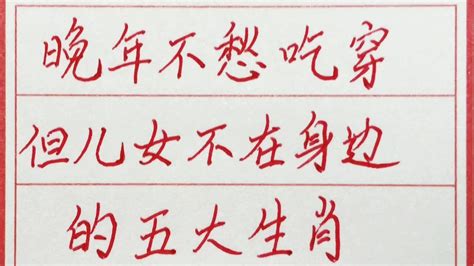 晚年不愁吃穿
但儿女不在身边
的五大生肖